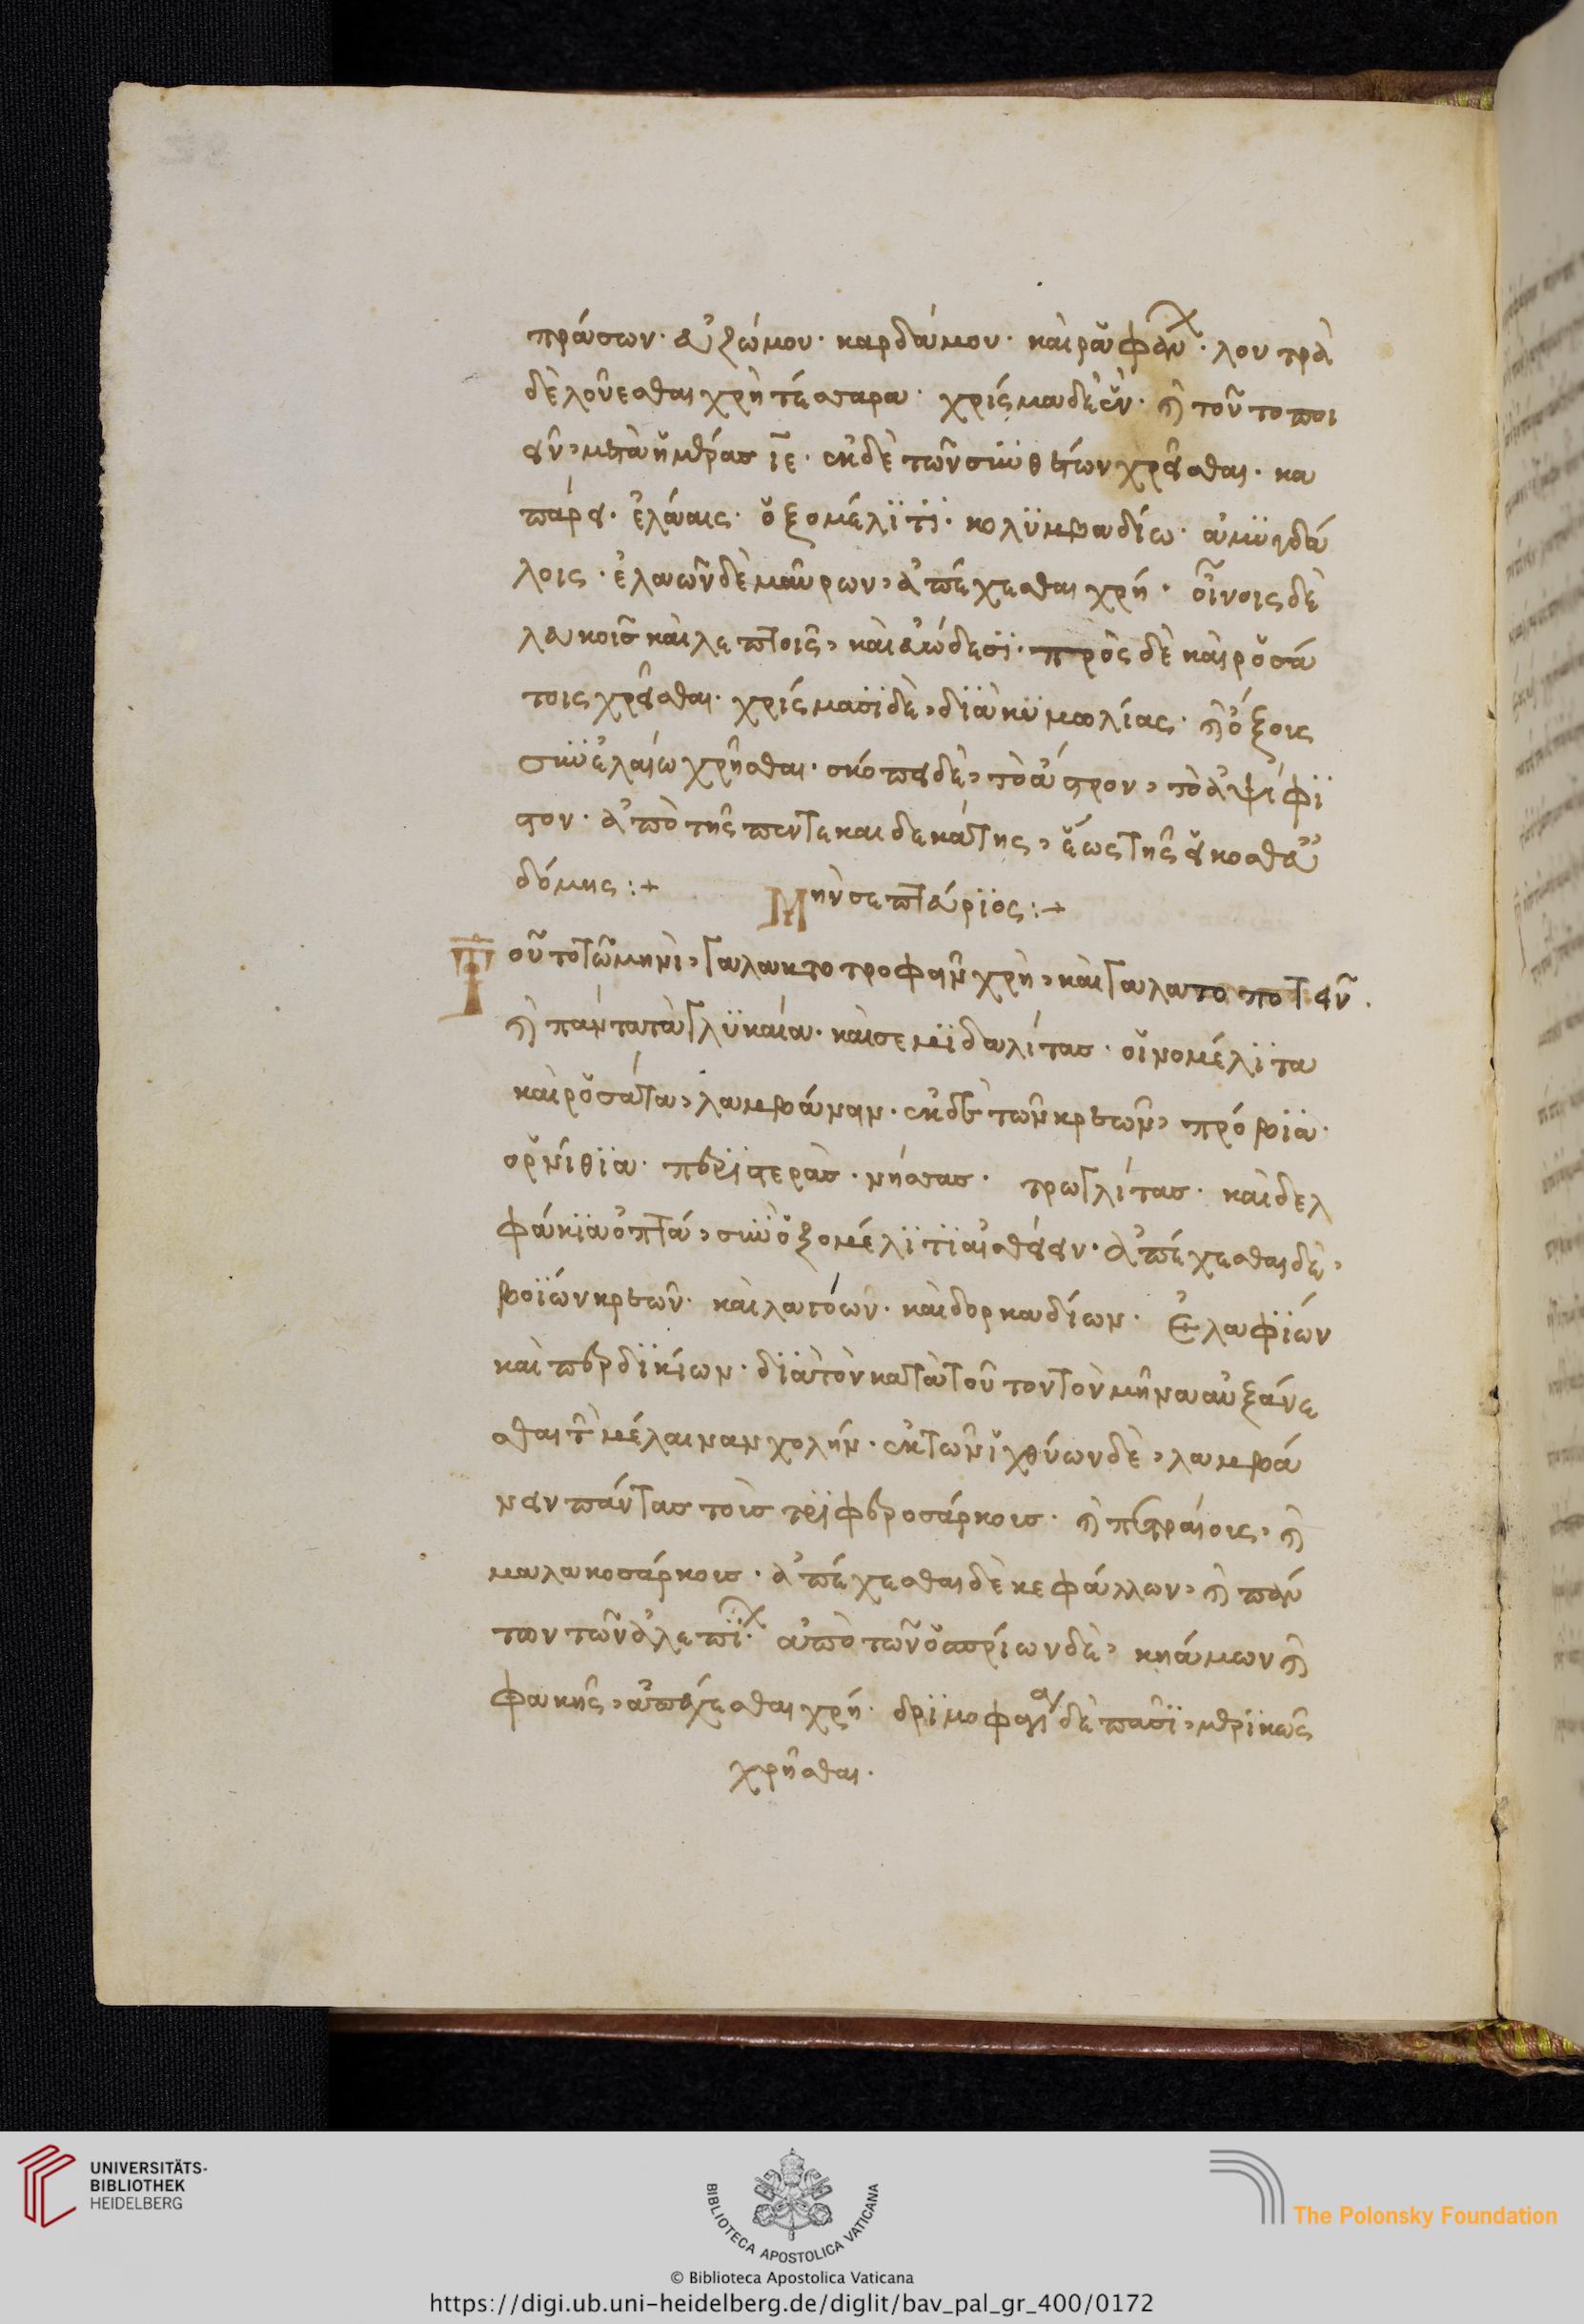 πράσων· εὐζώμου· καρδάμου· καὶ ραφάν· λουτρὰ
δὲ λούεσθαι χρὴ τέσσαρα· χρίσμα δὲ ἓν· καὶ τοῦτο ποι
εῖν, μετὰ ἡμέρας ιε· ἐκ δὲ τῶν συνθέτων χρεῖσθαι· κα
πάρει· ἐλάαις· ὀξομέλϊτϊ· κολϋμβαδίω· ἀμϋγδά
λοις· ἐλαιῶν δὲ μαύρων, ἀπέχεσθαι χρή· οἴνοις δὲ
λευκοῖς καὶ λεπτοῖς, καὶ εὐώδεσϊ· πρὸς δὲ καὶ ροσά
τοις χρεῖσθαι· χρίσμασϊ δὲ, δϊὰ κϋμωλίας· καὶ ὄξοις
σὺν ἐλαίω χρῆσθαι· σκόπει δὲ, τὸ ἄστρον, τὸ ἀψίφϊ
στον· ἀπὸ τῆς πεντεκαιδεκάτης, ἕως τῆς εἰκοσθεύ
δόμης:+
Μὴν σεπτεύρϊος:+
Τούτο τῶ μηνὶ, γαλακτοτροφεῖν χρὴ, καὶ γαλατοποτεῖν·
καὶ πάντα τὰ γλϋκαία· καὶ σεμϊδαλίτας· οἰνομέλϊτα
καὶ ροσάτα, λαμβάνειν· ἐκ δὲ τῶν κρεῶν, πρόβϊα·
ορνίθϊα· περϊστερὰς· νήσσας· τρωγλίτας· καὶ δελ
φάκϊα ὀπτά, σὺν ὀξομέλϊτϊ αἰσθίειν· ἀπέχεσθαι δὲ,
βοϊών κρεῶν· καὶ λαγόων· καὶ δορκαδίων· Ἐλαφϊών
καὶ περδϊκίων· δϊὰ τὸν κατὰ τοῦτον τὸν μῆνα αὐξάνε
σθαι τὴν μέλαιναν χολήν· ἐκ τῶν ἰχθύων δὲ, λαμβά
νειν πάντας τοῖς τρϊφεροσάρκοις· καὶ πετραίοις, καὶ
μαλακοσάρκοις· ἀπέχεσθαι δὲ κεφάλλων, καὶ πάν
των τῶν ἀλεπϊ· ἀπὸ τῶν ὀσπρίων δὲ, κηάμων καὶ
φακῆς, ἀπέχεσθαι χρή· δρϊμοφαγεί δὲ πᾶσϊ, μερϊκῶς
χρῆσθαι·
UNIVERSITÄTS-
BIBLIOTHEK
HEIDELBERG
BIBLIOTECA APOSTOLICA VATICANA
The Polonsky Foundation
© Biblioteca Apostolica Vaticana
https://digi.ub.uni-heidelberg.de/diglit/bav_pal_gr_400/0172